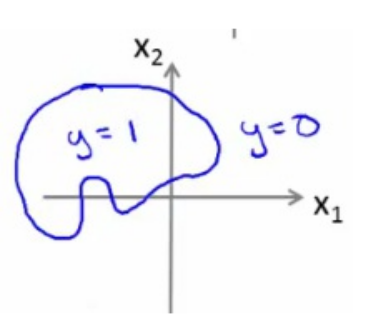 x₂
y=1
y=0
x₁